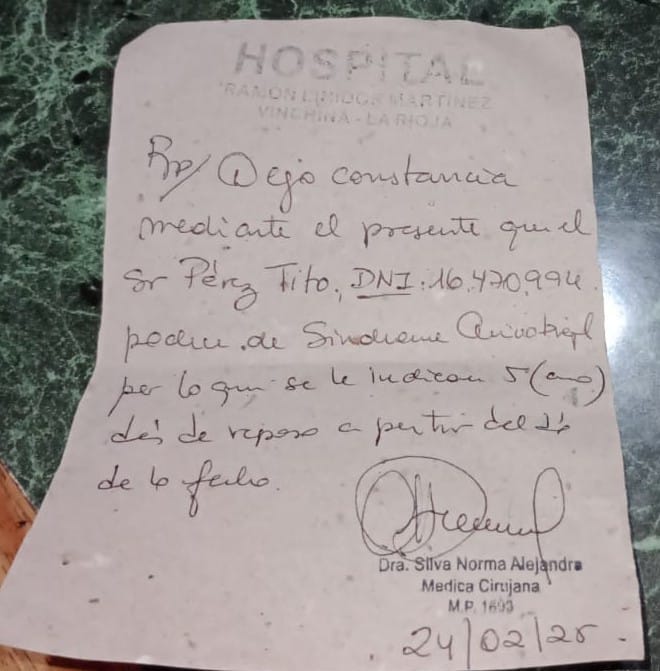 HOSPITAL
RAMON MARTINEZ
VINCHINA - LA RIOJA
Rp/ Dejo constancia
mediante el presente que el
Sr Pérez Tito, DNI: 16.470.994
padece de Sindrome
por lo que se le indican 5 (cinco)
días de reposo a partir del día
de la fecha.
Dra. Silva Norma Alejandra
Medica Cirujana
M.P. 1693
24/02/25